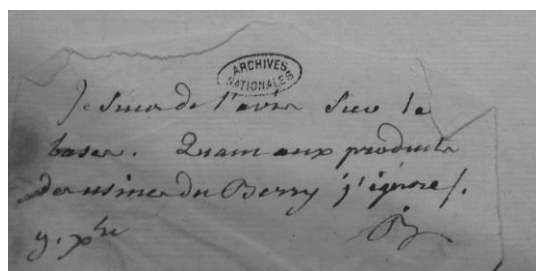 ARCHIVES
NATIONALES
Je suis de l'avis sur la
base. Quant aux produits
des usines du Berry j'ignore/.
9. xbre